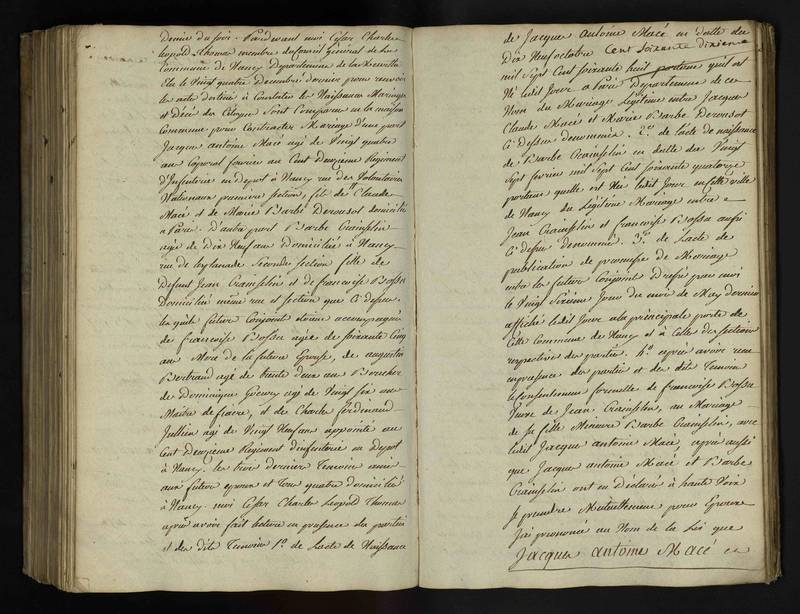 demie du soir. Pardevant moi César Charles
Léopold Thomas membre du conseil Général de la
Commune de Nancy Departement de la Meurthe
Elu le Vingt quatre Decembre dernier pour recevoir
les actes destinés à Constater les Naissances Mariages
et Décès des Citoyens Sont Comparus en la maison
Commune pour Contracter Mariage d'une part
Jacques antoine Macé agé de Vingt quatre
ans Caporal fourier au Cent deuxieme Regiment
d'Infanterie en Depot à Nancy rue des Volontaires
Nationaux premiere section, fils de Claude
Macé et de Marie Barbe Derousot domiciliés
à Paris. D'autre part Barbe Crainsplin
agée de Dix Neuf ans Domiciliée à Nancy
rue de lesplanade Seconde Section fille de
Defunt Jean Crainsplin et de francoise Bossu
Domiciliée même rue et Section que Ci dessus
Lesquels futurs Conjoints étoient accompagnés
de francoise Bossu agée de soixante Cinq
ans Mere de la future Epouse, de augustin
Bertrand agé de trente deux ans Boucher
de Dominique agé de Vingt six ans
Maitre de faire, et de Charles ferdinand
Jullien agé de Vingt Neuf ans appointé au
Cent Deuxieme Regiment d'infanterie en Depot
à Nancy. les trois derniers Temoins amis
aux futurs epoux et tous quatre domiciliés
à Nancy. moi César Charles Léopold Thomas
après avoir fait lecture en presence des parties
et des dits Temoins 1.º de Lacte de Naissance
de Jacques Antoine Macé en datte du
Dix Neuf octobre Cent soixante dixieme
mil Sept Cent Soixante huit portant quil est
Né ledit Jour a Paris Departement de ce
Nom du Mariage Légitime entre Jacques
Claude Macé et Marie Barbe Derousot
Ci Dessus denommés. 2.º de lacte de naissance
de Barbe Crainsplin en datte du Vingt
Sept fevrier mil Sept Cent Soixante quatorze
portant quelle est Née ledit Jour en cette ville
de Nancy du Légitime Mariage entre
Jean Crainsplin et francoise Bossu aussi
Ci dessus denommés. 3.º de Lacte de
publication de promesse de Mariage
entre les futurs Conjoints Dressé par moi
le Vingt Sixieme Jour du mois de May Dernier
affiché ledit Jour a la principale porte de
Cette Commune de Nancy et à Celles des sections
respectives des parties. 4.º après avoir recu
en presence des parties et des dits Temoins
le Consentement formelle de francoise Bossu
Veuve de Jean Crainsplin, au Mariage
de sa fille Mineure Barbe Crainsplin, avec
ledit Jacques antoine Macé, après aussi
que Jacques antoine Macé et Barbe
Crainsplin ont eu Déclaré à haute Voix
se prendre Mutuellement pour Epoux
J'ai prononcé au Nom de la Loi que
Jacques Antoine Macé et